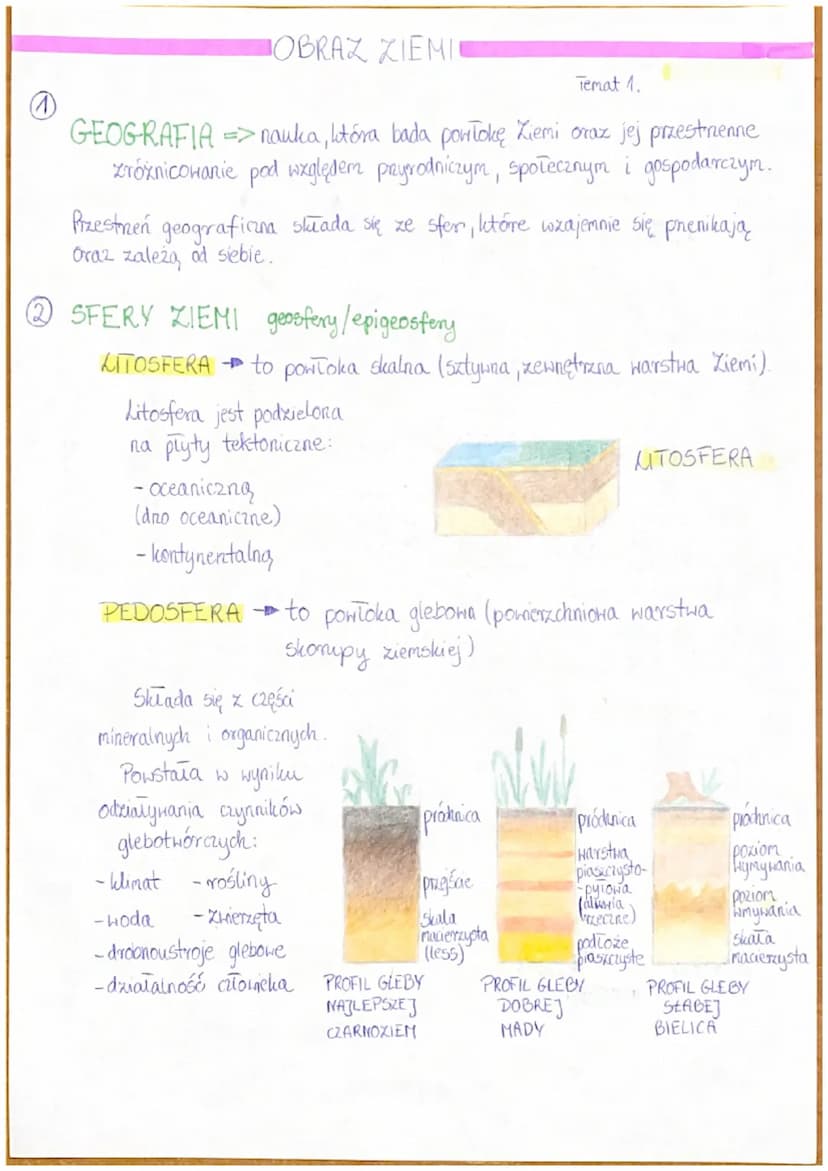 OBRAZ ZIEMI
Temat 1.
①
GEOGRAFIA => nauka, która bada powłokę Ziemi oraz jej przestrzenne
zróżnicowanie pod względem przyrodniczym, społecznym i gospodarczym.
Przestrzeń geograficzna składa się ze sfer, które wzajemnie się przenikają
oraz zależą od siebie.
② SFERY ZIEMI geosfery/epigeosfery
LITOSFERA → to powłoka skalna (sztywna, zewnętrzna warstwa Ziemi).
Litosfera jest podzielona
na płyty tektoniczne:
- oceaniczną
(dno oceaniczne)
- kontynentalną
LITOSFERA
PEDOSFERA → to powłoka glebowa (powierzchniowa warstwa
skorupy ziemskiej)
Składa się z części
mineralnych i organicznych.
Powstała w wyniku
odziaływania czynników
glebotwórczych:
- klimat - rośliny
- woda - zwierzęta
- drobnoustroje glebowe
- działalność człowieka
próchnica
przejście
skała
macierzysta
(less)
PROFIL GLEBY
NAJLEPSZEJ
CZARNOZIEM
próchnica
warstwa
piaszczysto-
-pyłowa
(aluwia
rzeczne)
podłoże
piaszczyste
PROFIL GLEBY
DOBREJ
MADY
próchnica
poziom
wymywania
poziom
wmywania
skała
macierzysta
PROFIL GLEBY
SŁABEJ
BIELICA